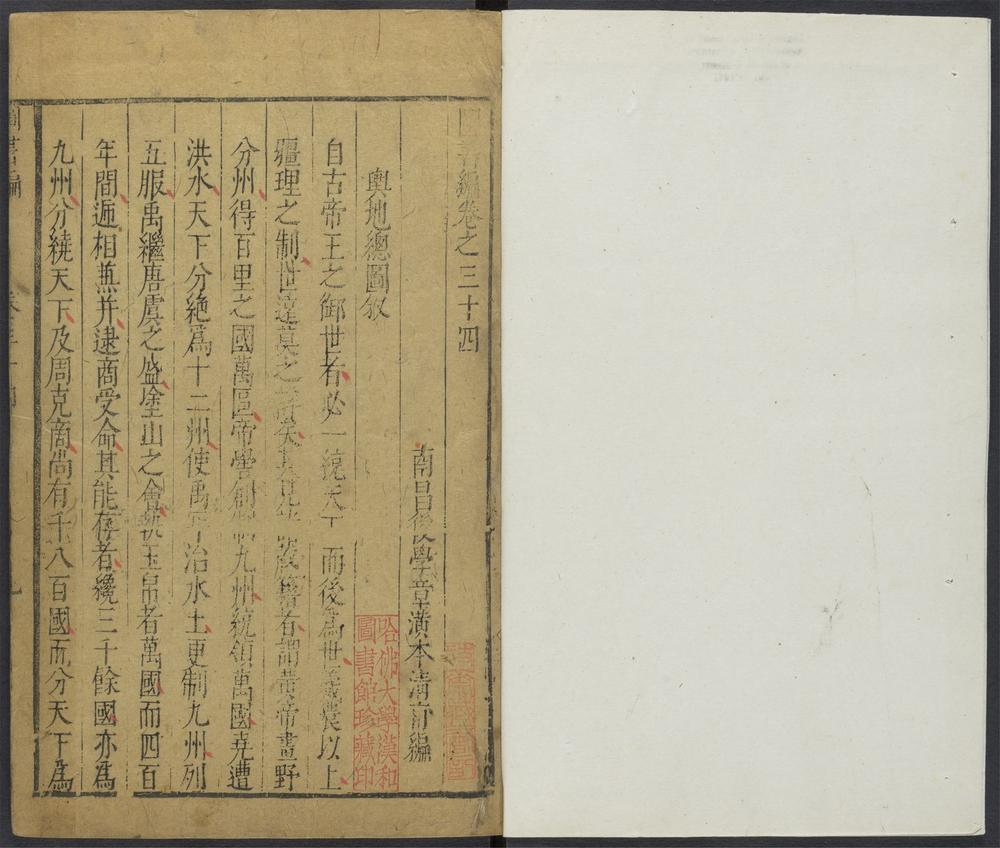 圖書編卷之三十四
南昌後學章潢本清甫編
輿地總圖敘
自古帝王之御世者必一統天下而後為世羲農以上
疆理之制世遠莫之詳矣其見於載籍者謂黃帝畫野
分州得百里之國萬區帝嚳創制九州統領萬國堯遭
洪水天下分絶爲十二州使禹平治水土更制九州列
五服禹繼唐虞之盛塗山之會執玉帛者萬國而四百
年間遞相兼并逮商受命其能存者纔三千餘國亦爲
九州分統天下及周克商尚有千八百國而分天下爲
圖書編
哈佛大學漢和
圖書館珍藏印